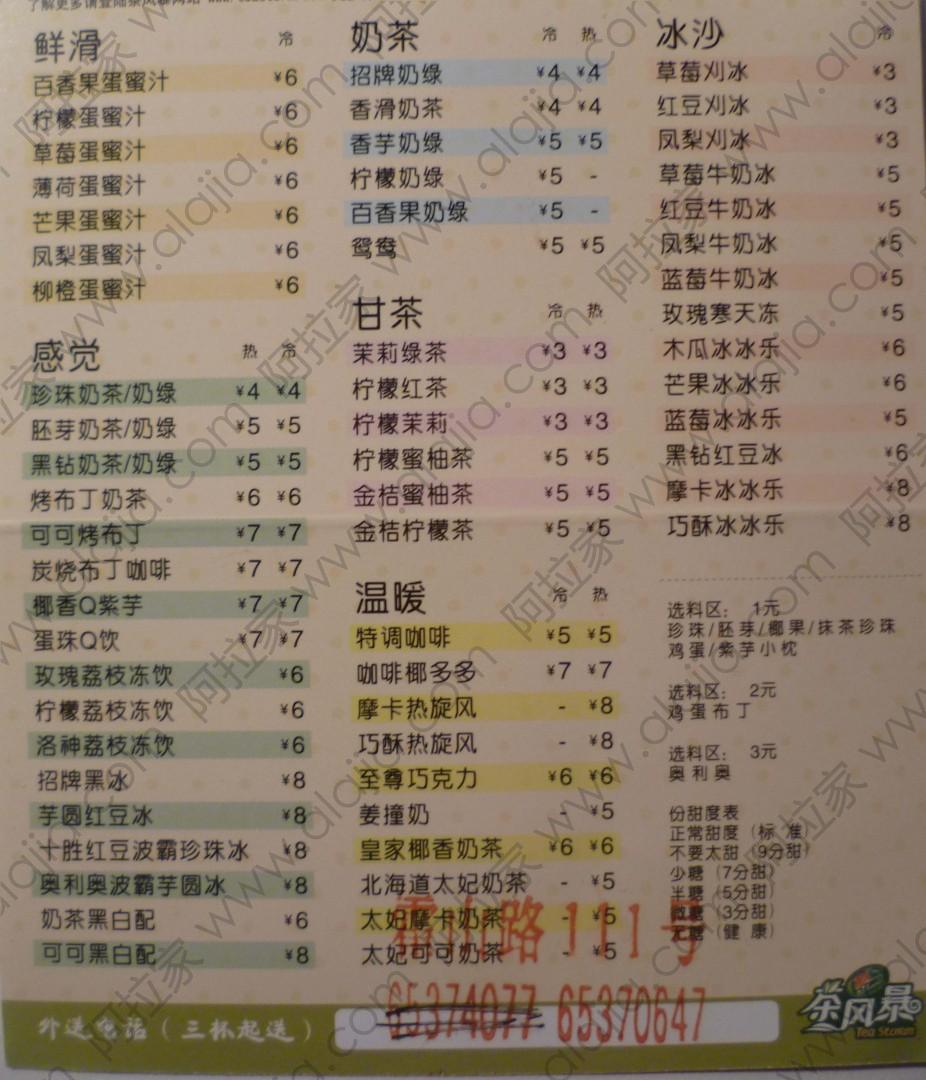 了解更多请登陆茶风暴网站
鲜滑 冷
百香果蛋蜜汁 ¥6
柠檬蛋蜜汁 ¥6
草莓蛋蜜汁 ¥6
薄荷蛋蜜汁 ¥6
芒果蛋蜜汁 ¥6
凤梨蛋蜜汁 ¥6
柳橙蛋蜜汁 ¥6
感觉 热 冷
珍珠奶茶/奶绿 ¥4 ¥4
胚芽奶茶/奶绿 ¥5 ¥5
黑钻奶茶/奶绿 ¥5 ¥5
烤布丁奶茶 ¥6 ¥6
可可烤布丁 ¥7 ¥7
炭烧布丁咖啡 ¥7 ¥7
椰香Q紫芋 ¥7 ¥7
蛋珠Q饮 ¥7 ¥7
玫瑰荔枝冻饮 ¥6
柠檬荔枝冻饮 ¥6
洛神荔枝冻饮 ¥6
招牌黑冰 ¥8
芋圆红豆冰 ¥8
十胜红豆波霸珍珠冰 ¥8
奥利奥波霸芋圆冰 ¥8
奶茶黑白配 ¥6
可可黑白配 ¥8
奶茶 冷 热
招牌奶绿 ¥4 ¥4
香滑奶茶 ¥4 ¥4
香芋奶绿 ¥5 ¥5
柠檬奶绿 ¥5 -
百香果奶绿 ¥5 -
鸳鸯 ¥5 ¥5
甘茶 冷 热
茉莉绿茶 ¥3 ¥3
柠檬红茶 ¥3 ¥3
柠檬茉莉 ¥3 ¥3
柠檬蜜柚茶 ¥5 ¥5
金桔蜜柚茶 ¥5 ¥5
金桔柠檬茶 ¥5 ¥5
温暖 冷 热
特调咖啡 ¥5 ¥5
咖啡椰多多 ¥7 ¥7
摩卡热旋风 - ¥8
巧酥热旋风 - ¥8
至尊巧克力 ¥6 ¥6
姜撞奶 - ¥5
皇家椰香奶茶 ¥6 ¥6
北海道太妃奶茶 - ¥5
太妃摩卡奶茶 - ¥5
太妃可可奶茶 - ¥5
冰沙 冷
草莓刈冰 ¥3
红豆刈冰 ¥3
凤梨刈冰 ¥3
草莓牛奶冰 ¥5
红豆牛奶冰 ¥5
凤梨牛奶冰 ¥5
蓝莓牛奶冰 ¥5
玫瑰寒天冻 ¥5
木瓜冰冰乐 ¥6
芒果冰冰乐 ¥6
蓝莓冰冰乐 ¥5
黑钻红豆冰 ¥6
摩卡冰冰乐 ¥8
巧酥冰冰乐 ¥8
选料区： 1元
珍珠/胚芽/椰果/抹茶珍珠
鸡蛋/紫芋小枕
选料区： 2元
鸡蛋布丁
选料区： 3元
奥利奥
份甜度表
正常甜度（标 准）
不要太甜（9分甜）
少糖（7分甜）
半糖（5分甜）
微糖（3分甜）
无糖（健 康）
霍山路111号
外送电话（三杯起送）
65374077 65370647
茶风暴
Tea Storm
阿拉家 www.alajia.com